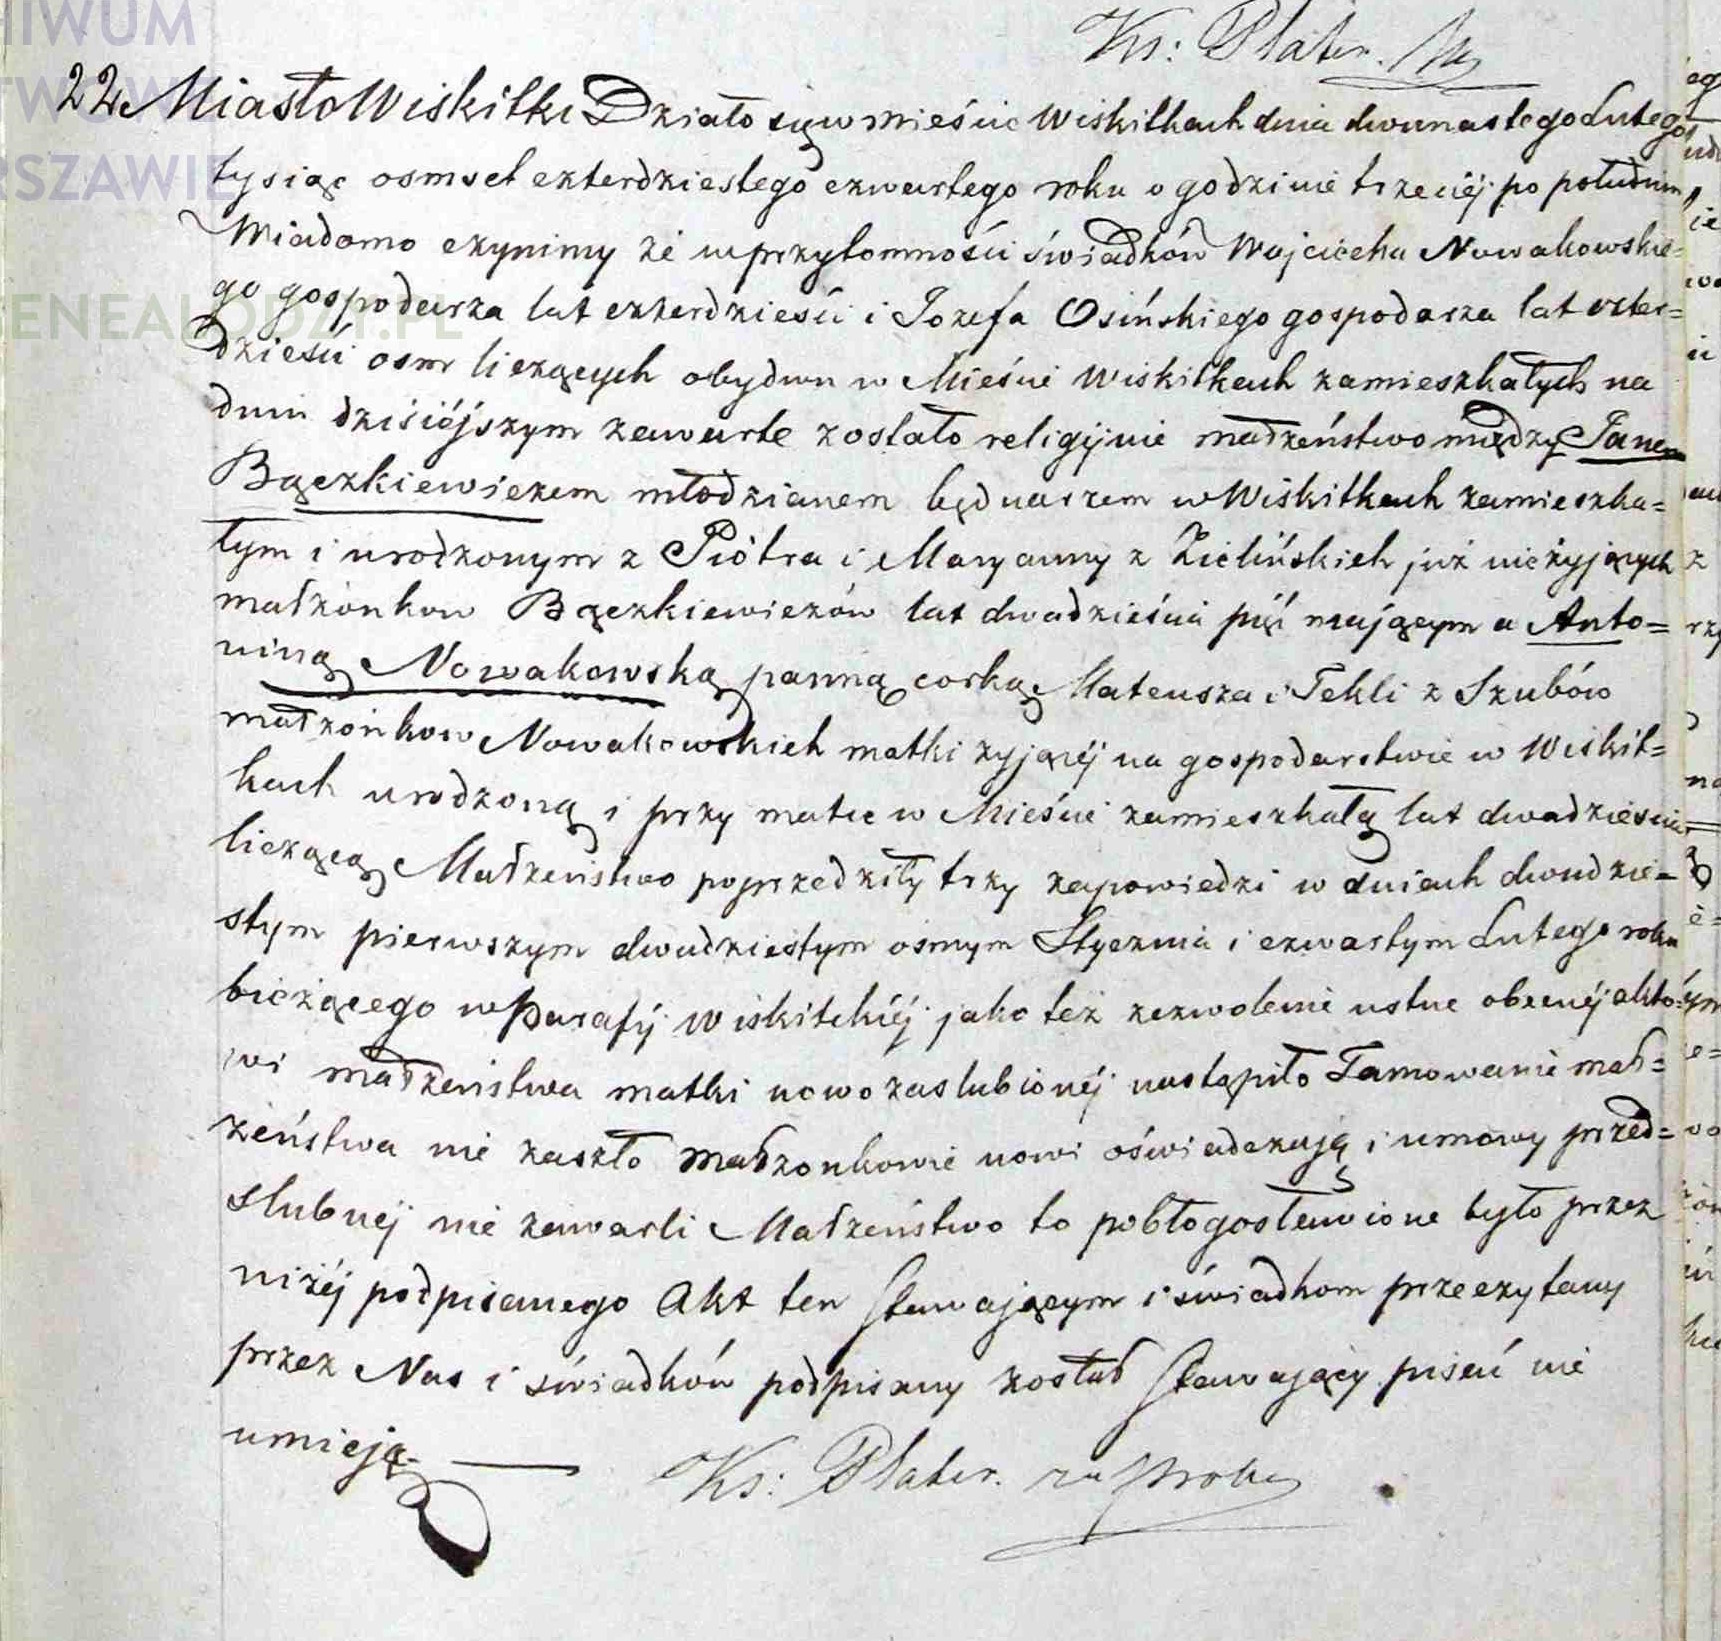 Ks: Plater.
22 Miasto Wiskitki Działo się w mieście Wiskitkach dnia dwunastego Lutego
tysiąc osmset czterdziestego czwartego roku o godzinie trzeciéj po południu
Wiadomo czynimy że w przytomności świadków Wojciecha Nowakowskie=
go gospodarza lat czterdzieści i Jozefa Osińskiego gospodarza lat czter=
dzieści osm liczących obydwu w Mieście Wiskitkach zamieszkałych na
dniu dzisiéjszym zawarte zostało religijnie małżeństwo między Janem
Bączkiewiczem młodzianem będnarzem w Wiskitkach zamieszka=
łym i urodzonym z Piótra i Maryanny z Zielińskich już nieżyjących
małżonkow Bączkiewiczów lat dwadzieścia pięć mającym a Anto=
niną Nowakowską panną corką Mateusza i Tekli z Szubów
małżonkow Nowakowskich matki żyjącéj na gospodarstwie w Wiskit=
kach urodzoną i przy matce w Mieście zamieszkałą lat dwadzieścia
liczącą Małżeństwo poprzedziły trzy zapowiedzi w dniach dwudzie=
stym pierwszym dwudziestym osmym Stycznia i czwartym Lutego roku
bieżącego w Parafij Wiskitckiéj jako też zezwolenie ustne obecnéj akto=
wi małżeństwa matki nowozaslubionéj nastąpiło Tamowanie mał=
żeństwa nie zaszło Małżonkowie nowi oświadczają i umowy przed=
slubnej nie zawarli Małżeństwo to pobłogosławione było przez
niżéj podpisanego Akt ten stawającym i świadkom przeczytany
przez Nas i świadków podpisany został stawający pisać nie
umieją.
Ks: Plater. za Prob
GENEALODZY.PL